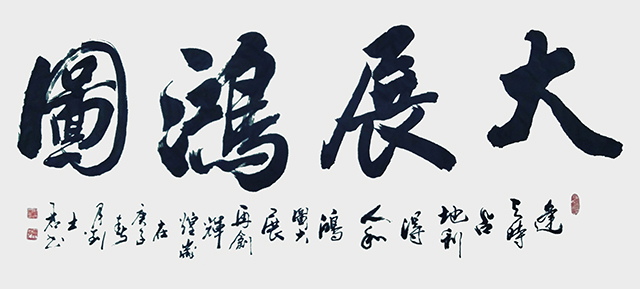 大展鴻圖
逢天時占地利得人和鴻圖大展再創輝煌歲在庚子春月